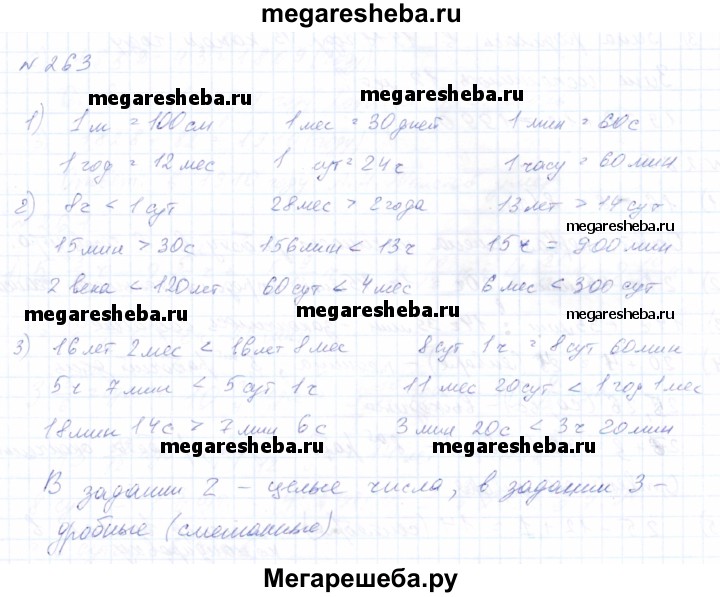 megaresheba.ru
№ 263
megaresheba.ru megaresheba.ru
1) 1м = 100см 1мес = 30дней 1мин = 60с
1год = 12мес 1 сут = 24ч 1часу = 60мин
2) 8ч < 1сут 28мес > 2года 13лет > 14сут
megaresheba.ru
15мин > 30с 156мин < 13ч 15ч = 900мин
2века < 120лет 60сут < 4мес 6мес < 300сут
megaresheba.ru megaresheba.ru megaresheba.ru
3) 16лет 2мес < 16лет 8мес 8сут 1ч = 8сут 60мин
5ч 7мин < 5сут 1ч 11мес 20сут < 1год 1мес
18мин 14с > 7мин 6с 3мин 20с < 3ч 20мин
megaresheba.ru megaresheba.ru
В задании 2 – целые числа, в задании 3 –
дробные (смешанные)
Мегарешеба.ру